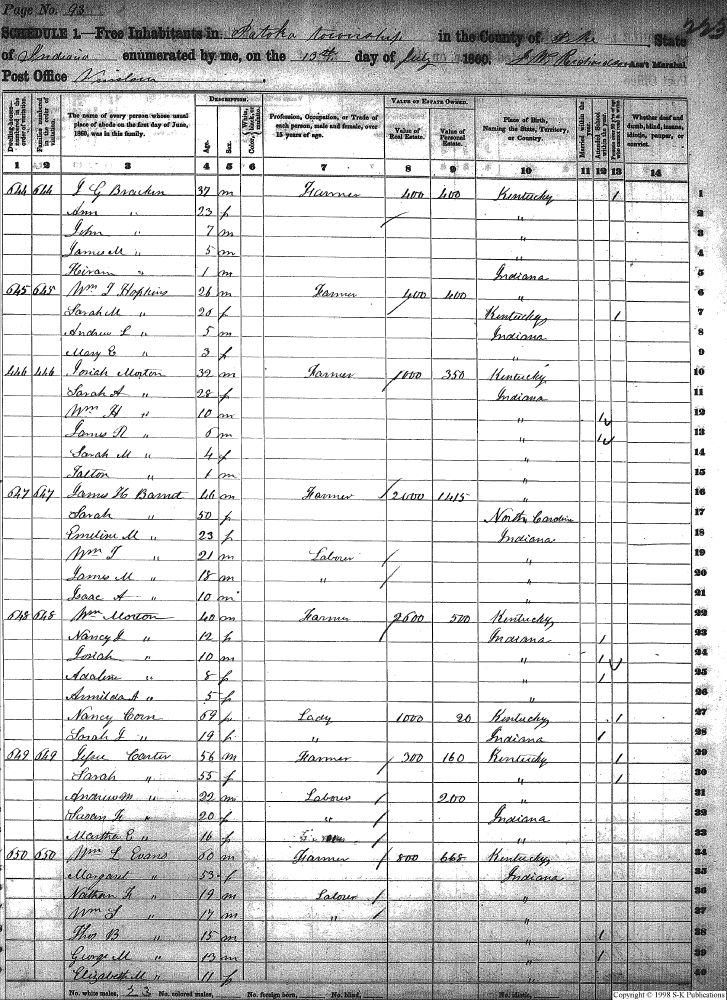 Page No. 93
223
SCHEDULE 1.—Free Inhabitants in Patoka township in the County of Pike State
of Indiana enumerated by me, on the 13th day of July 1860. Ass't Marshal
Post Office Winslow
Dwelling-houses—numbered in the order of visitation.
Families numbered in the order of visitation.
The name of every person whose usual place of abode on the first day of June, 1860, was in this family.
DESCRIPTION.
Age.
Sex.
Color, White, black, or mulatto.
Profession, Occupation, or Trade of each person, male and female, over 15 years of age.
VALUE OF ESTATE OWNED.
Value of Real Estate.
Value of Personal Estate.
Place of Birth, Naming the State, Territory, or Country.
Married within the year.
Attended School within the year.
Whether deaf and dumb, blind, insane, idiotic, pauper, or convict.
1 2 3 4 5 6 7 8 9 10 11 12 13 14
644 644 J G Bracken 37 m Farmer 400 400 Kentucky 1 1
Ann " 23 f " 2
John " 7 m " 3
James M " 5 m " 4
Hiram " 1 m Indiana 5
645 645 Wm T Hopkins 26 m Farmer 400 400 " 6
Sarah M " 20 f Kentucky 1 7
Andrew L " 5 m Indiana 8
Mary E " 3 f " 9
446 446 Josiah Morton 32 m Farmer 1000 350 Kentucky 10
Sarah A " 28 f Indiana 11
Wm H " 10 m " 1 12
James R " 6 m " 1 13
Sarah M " 4 f " 14
Talton " 1 m " 15
647 647 James H Barnet 46 m Farmer 2000 1415 " 16
Sarah " 50 f North Carolina 17
Emeline M " 23 f Indiana 18
Wm T " 21 m Laborer " 19
James M " 18 m " " 20
Isaac A " 10 m " 21
648 648 Wm Morton 40 m Farmer 2600 500 Kentucky 22
Nancy J " 12 f Indiana 1 23
Josiah " 10 m " 1 24
Adaline " 8 f " 1 25
Armilda A " 5 f " 26
Nancy Corn 69 f Lady 1000 20 Kentucky 1 27
Sarah J " 19 f " Indiana 1 28
649 649 Jesse Carter 56 m Farmer 300 160 Kentucky 1 29
Sarah " 55 f " 1 30
Andrew M " 22 m Laborer 200 " 31
Susan F " 20 f " Indiana 32
Martha E " 16 f " 33
650 650 Wm L Evans 60 m Farmer 800 668 Kentucky 34
Margaret " 53 f Indiana 35
Nathan F " 19 m Laborer " 36
Wm S " 17 m " " 37
Thos B " 15 m " 1 38
George M " 13 m " 1 39
Elizabeth M " 11 f " 40
No. white males, 23 No. colored males, No. foreign born, No. blind, No. idiotic,
Copyright © 1998 S-K Publications